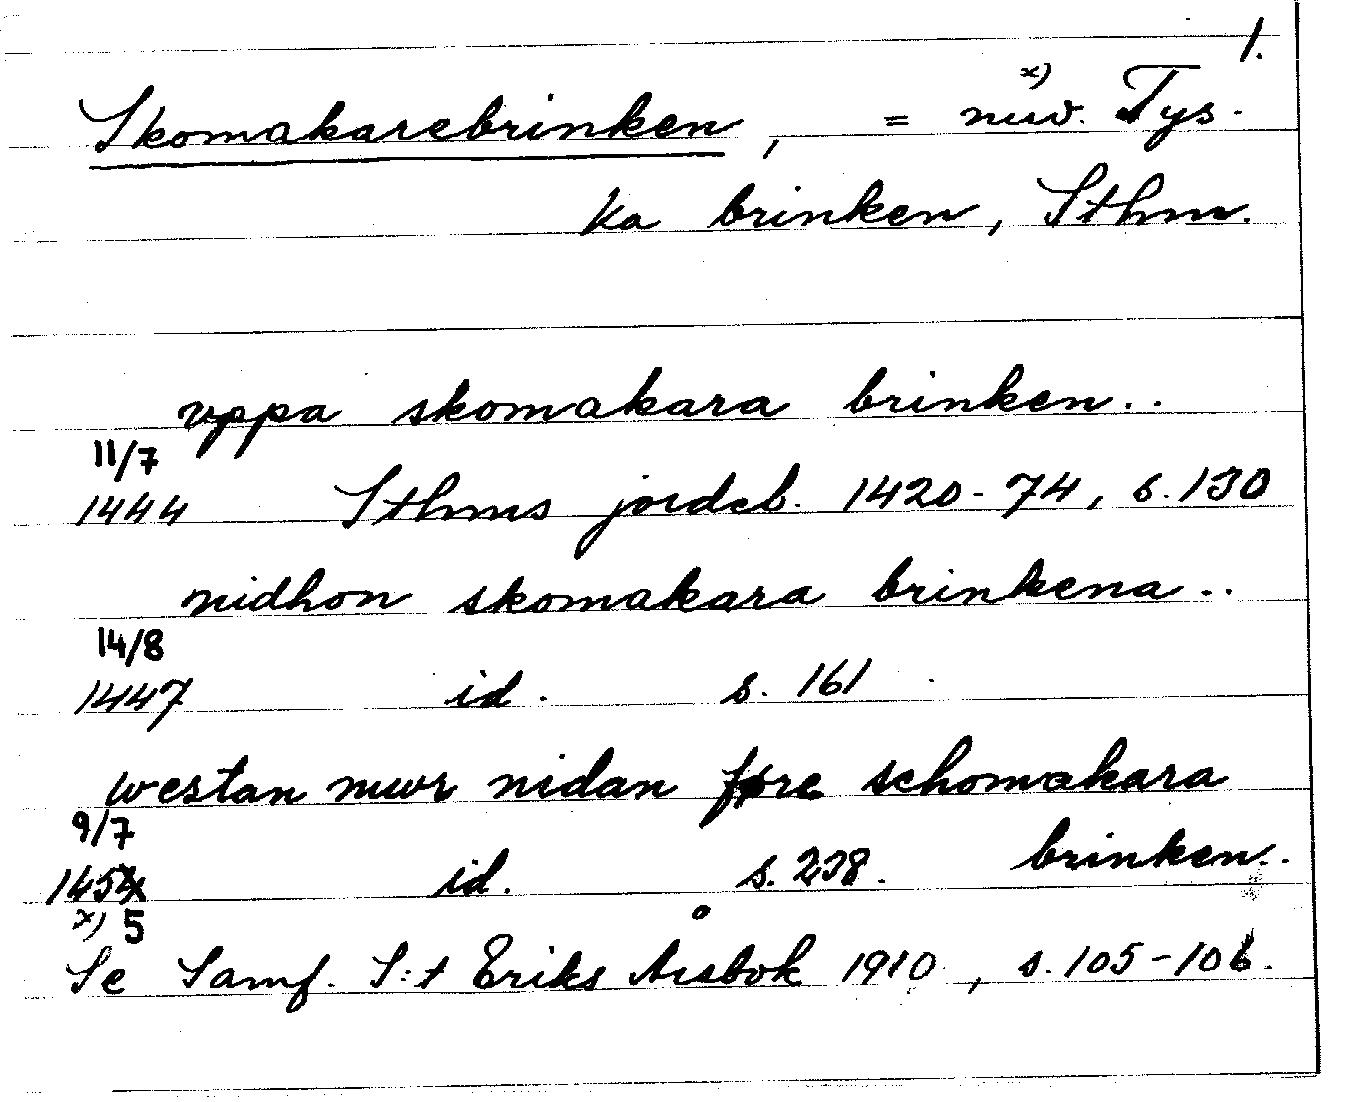 1.
Skomakarebrinken, = nuv. x) Tys-
ka brinken, Sthm.
vppa skomakara brinken..
11/7
1444 Sthms jordeb. 1420-74, s. 130
nidhon skomakara brinkena..
14/8
1447 id. s. 161
westan mwr nidan fore schomakara
9/7 brinken..
145 id. s. 238.
x) 5
Se Samf. S:t Eriks Årsbok 1910, s. 105-106.